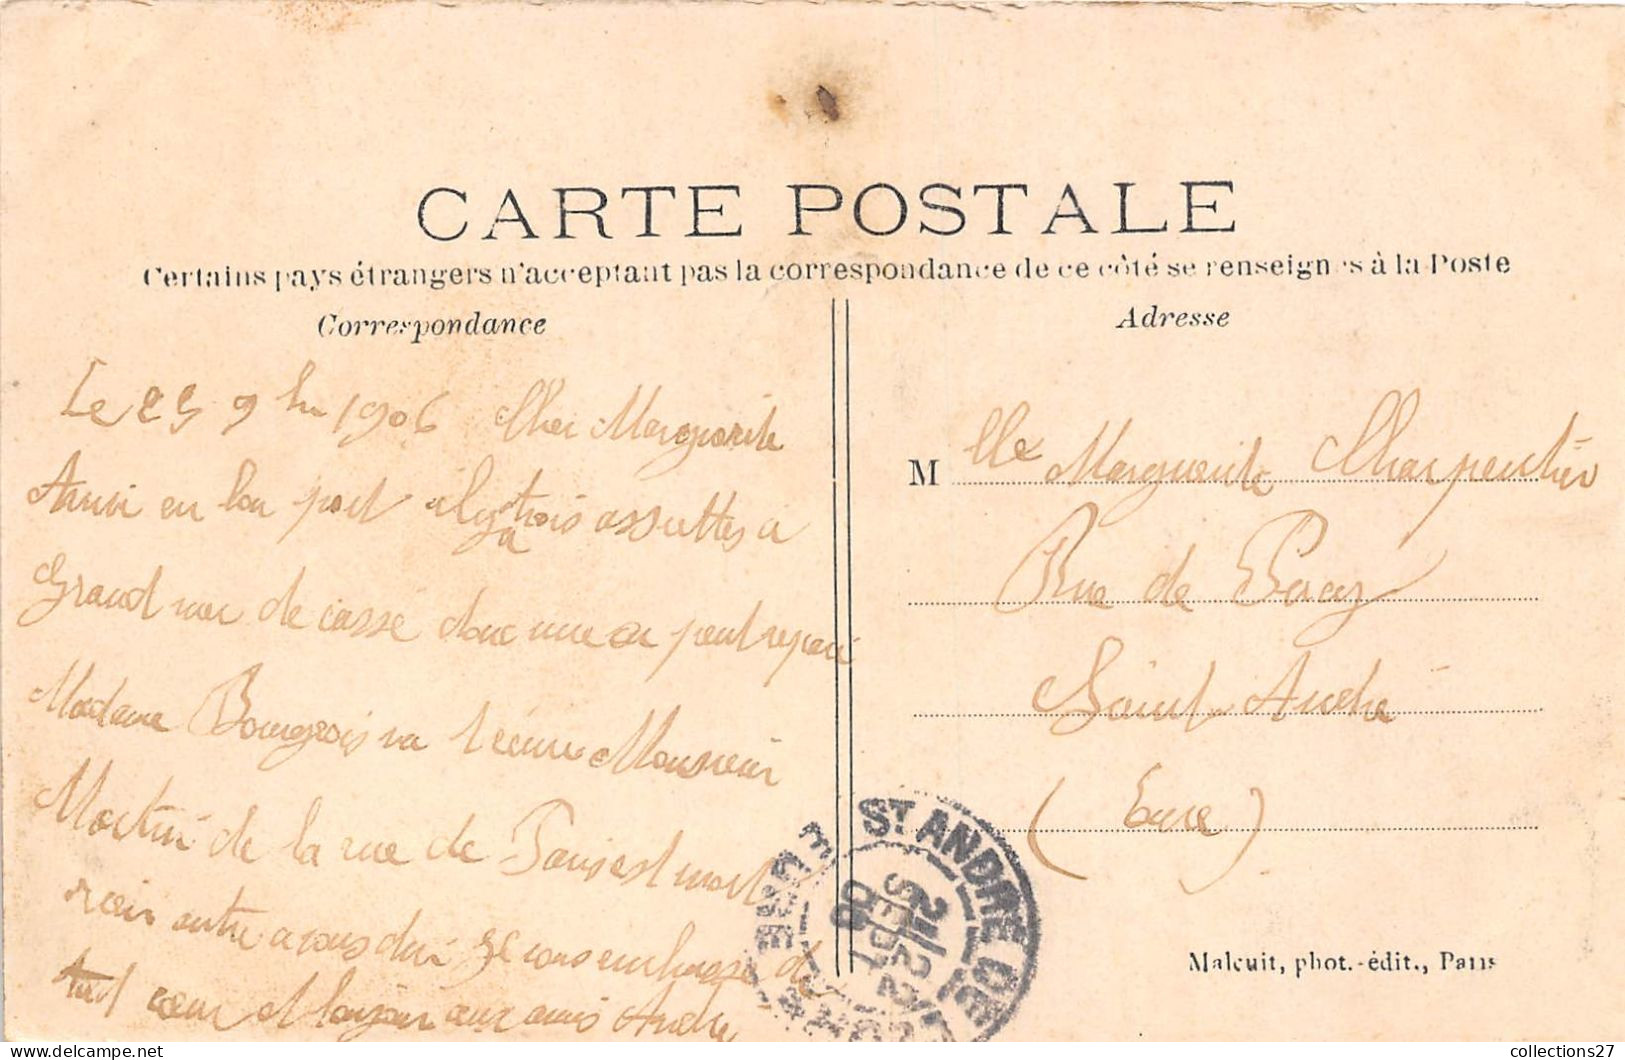 CARTE POSTALE
Certains pays étrangers n'acceptant pas la correspondance de ce côté se renseign s à la Poste
Correspondance
Le 25 9 1906 Cher Marguerite
Arrivé en bon port il y a trois assiettes a
Grand mer de cassé donc une on peut
Madame Bourgeois va Monsieur
Martin de la rue de Paris est mort
rien autre a vous dire Je vous embrasse de
tout cœur et bonjour aux amis André
Adresse
Mlle Marguerite Charpentier
Rue de Pacy
Saint André
(Eure)
ST ANDRÉ DE L'EURE
SEPT
06
EURE
Malcuit, phot.-édit., Paris
collections27